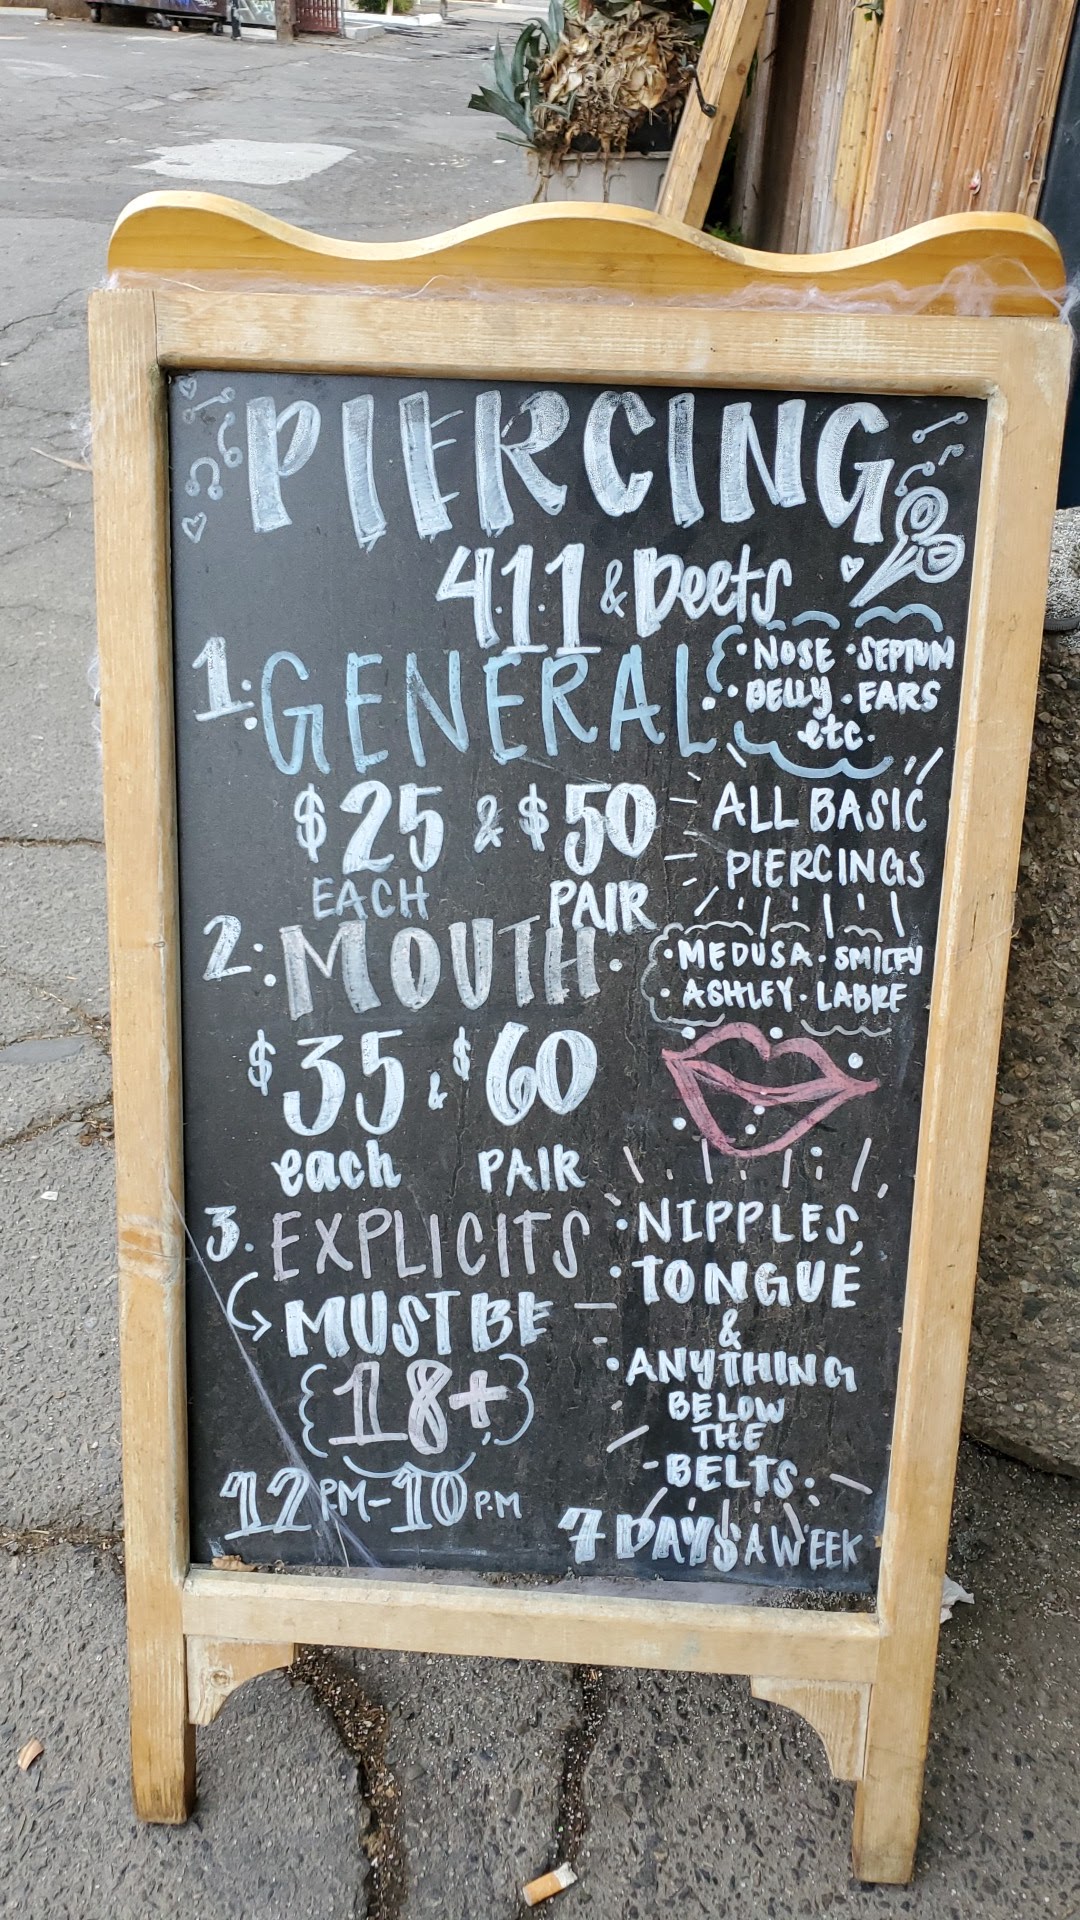 PIERCING
4.1.1 & Deets
1. GENERAL
• NOSE • SEPTUM
• BELLY • EARS
etc.
$25 & $50
EACH PAIR
ALL BASIC
PIERCINGS
2. MOUTH
• MEDUSA • SMILEY
• ASHLEY • LABRE
$35 & $60
each PAIR
3. EXPLICITS
MUST BE
18+
• NIPPLES,
• TONGUE
&
• ANYTHING
BELOW
THE
- BELTS.
12 PM - 10 P.M
7 DAYS A WEEK